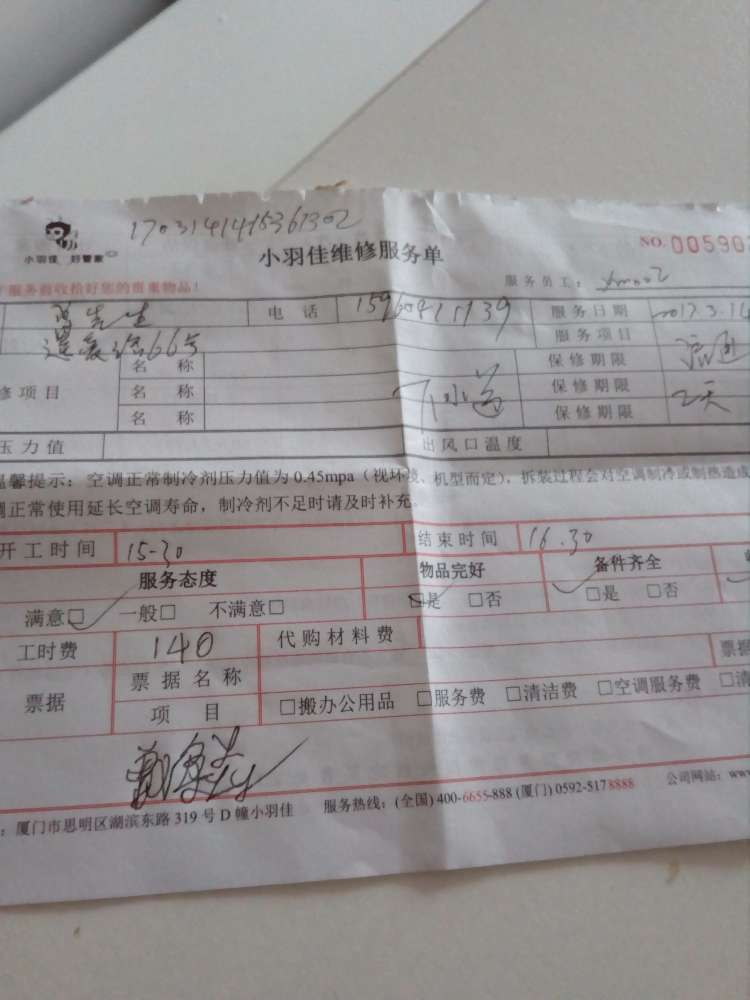 1703141415361302
小羽佳 好管家
小羽佳维修服务单
NO. 00590
服务员工： xm002
服务前收拾好您的贵重物品！
先生 电话 服务日期 2017.3.14
66号 服务项目
名称 保修期限
修项目 名称 下水道 保修期限 2天
名称 保修期限
压力值 出风口温度
温馨提示：空调正常制冷剂压力值为0.45mpa（视环境、机型而定），拆装过程会对空调制冷或制热造成
调正常使用延长空调寿命，制冷剂不足时请及时补充。
开工时间 15-30 结束时间 16.30
服务态度 物品完好 备件齐全
满意□ 一般□ 不满意□ □是 □否 □是 □否
工时费 140 代购材料费
票据 票据名称 票据
项目 □搬办公用品 □服务费 □清洁费 □空调服务费 □清
：厦门市思明区湖滨东路319号D幢小羽佳 服务热线：(全国) 400-6655-888 (厦门) 0592-5178888 公司网站：www